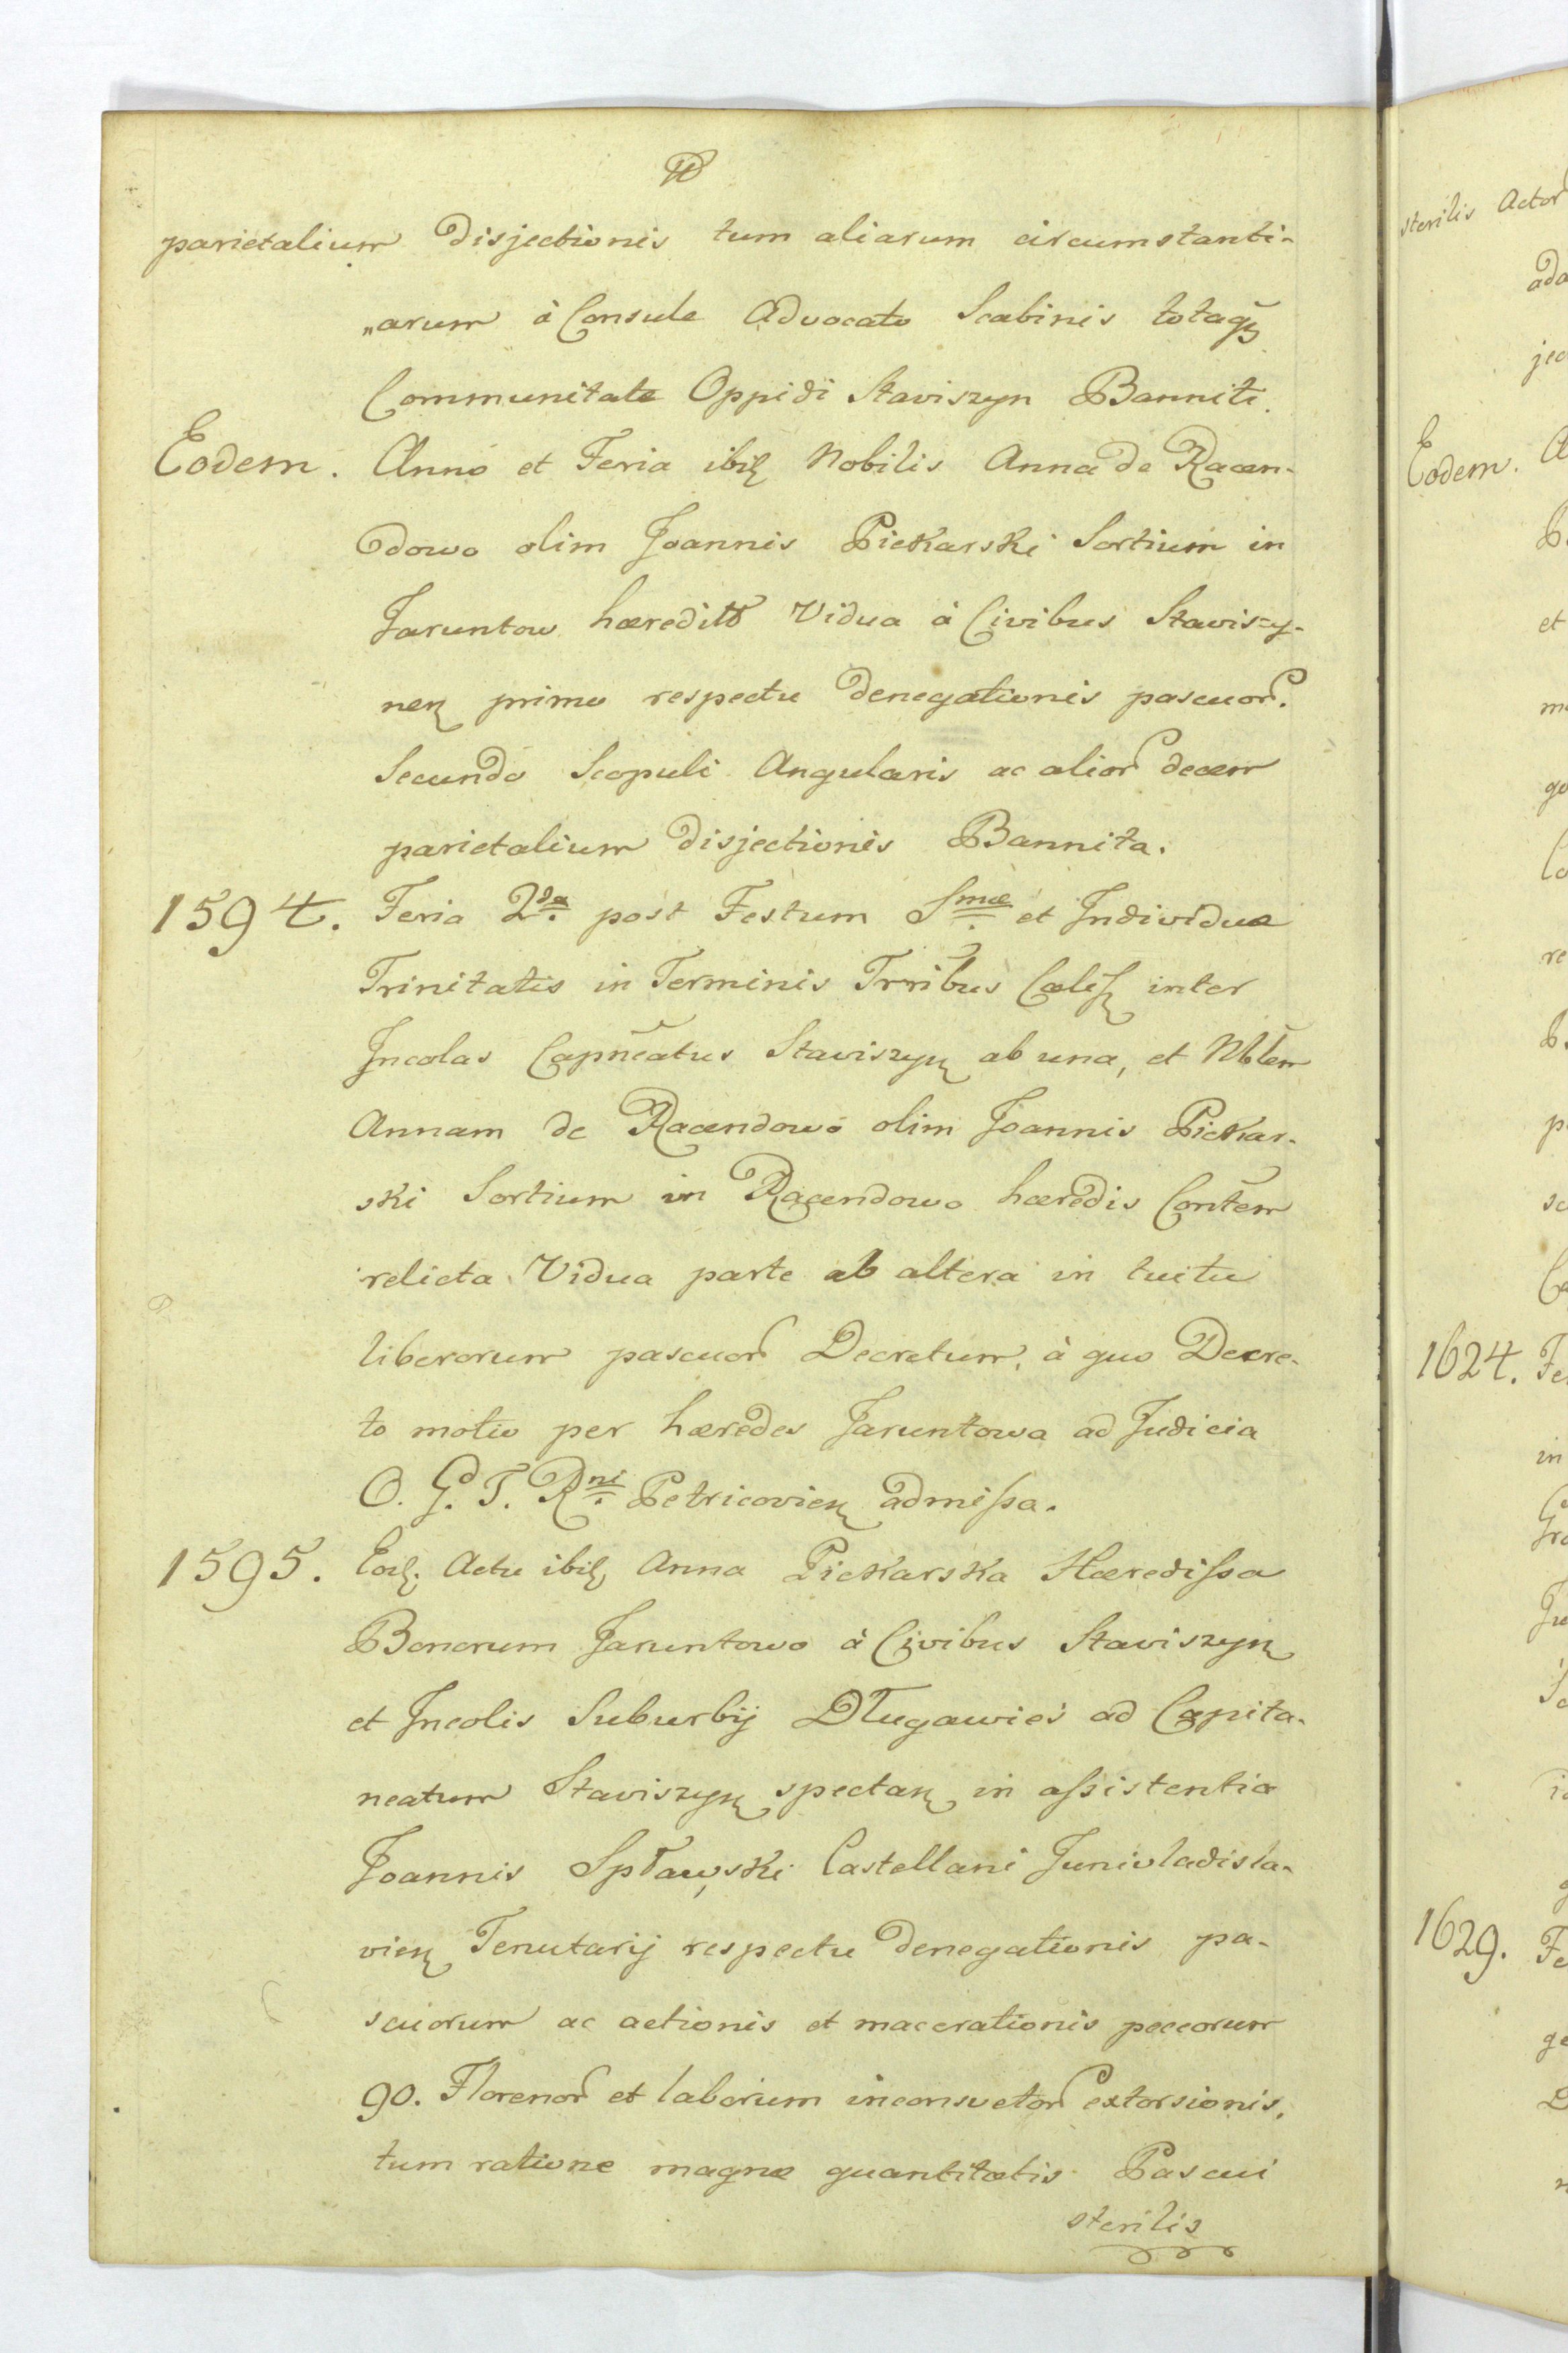 parietalium Disjectionis tum aliarum circumstanti-
„arum à Consule Advocato Scabinis totaq̃ꝫ
Communitate Oppidi Staviszyn Banniti.
Eodem. Anno et Feria ibiꝫ Nobilis Anna de Racen-
dowo olim Joannis Piekarski Sortium in
Jaruntow hæredits Vidua à Civibus Stawiszy-
neꝫ primo respectu denegationis pascuor.
Secundo Scopuli Angularis ac alior decem
parietalium Disjectionis Bannita.
1594. Feria 2da post Festum Smæ et Individuæ
Trinitatis in Terminis Trribus Calisꝫ inter
Incolas Capñeatus Staviszyꝫ ab una, et Nblem
Annam de Racendowo olim Joannis Piekar-
ski Sortium in Racendowo hæredis Conŧem
relicta Vidua parte ab altera in tuitu
liberorum pascuor Decretum, à quo Decre-
to motio per hæredes Jaruntowa ad Judicia
O. G. T. Rni Petricovieꝫ admissa.
1595. Eoꝫ. Actu ibiꝫ Anna Piekarska Hæredissa
Bonorum Jaruntowo à Civibus Staviszyꝫ
et Incolis Suburbij Długawieś ad Capita-
neatum Staviszyꝫ spectaꝫ in assistentia
Joannis Spławski Castellani Junivladisla-
vieꝫ Tenutarij respectu denegationis pa-
scuorum ac actionis et macerationis peccorum
90. Florenor et laborum inconsuetor extorsionis,
tum ratione magnæ quantitatis Pascui
sterilis
sterilis Actor
Eodem.
1624.
1629.